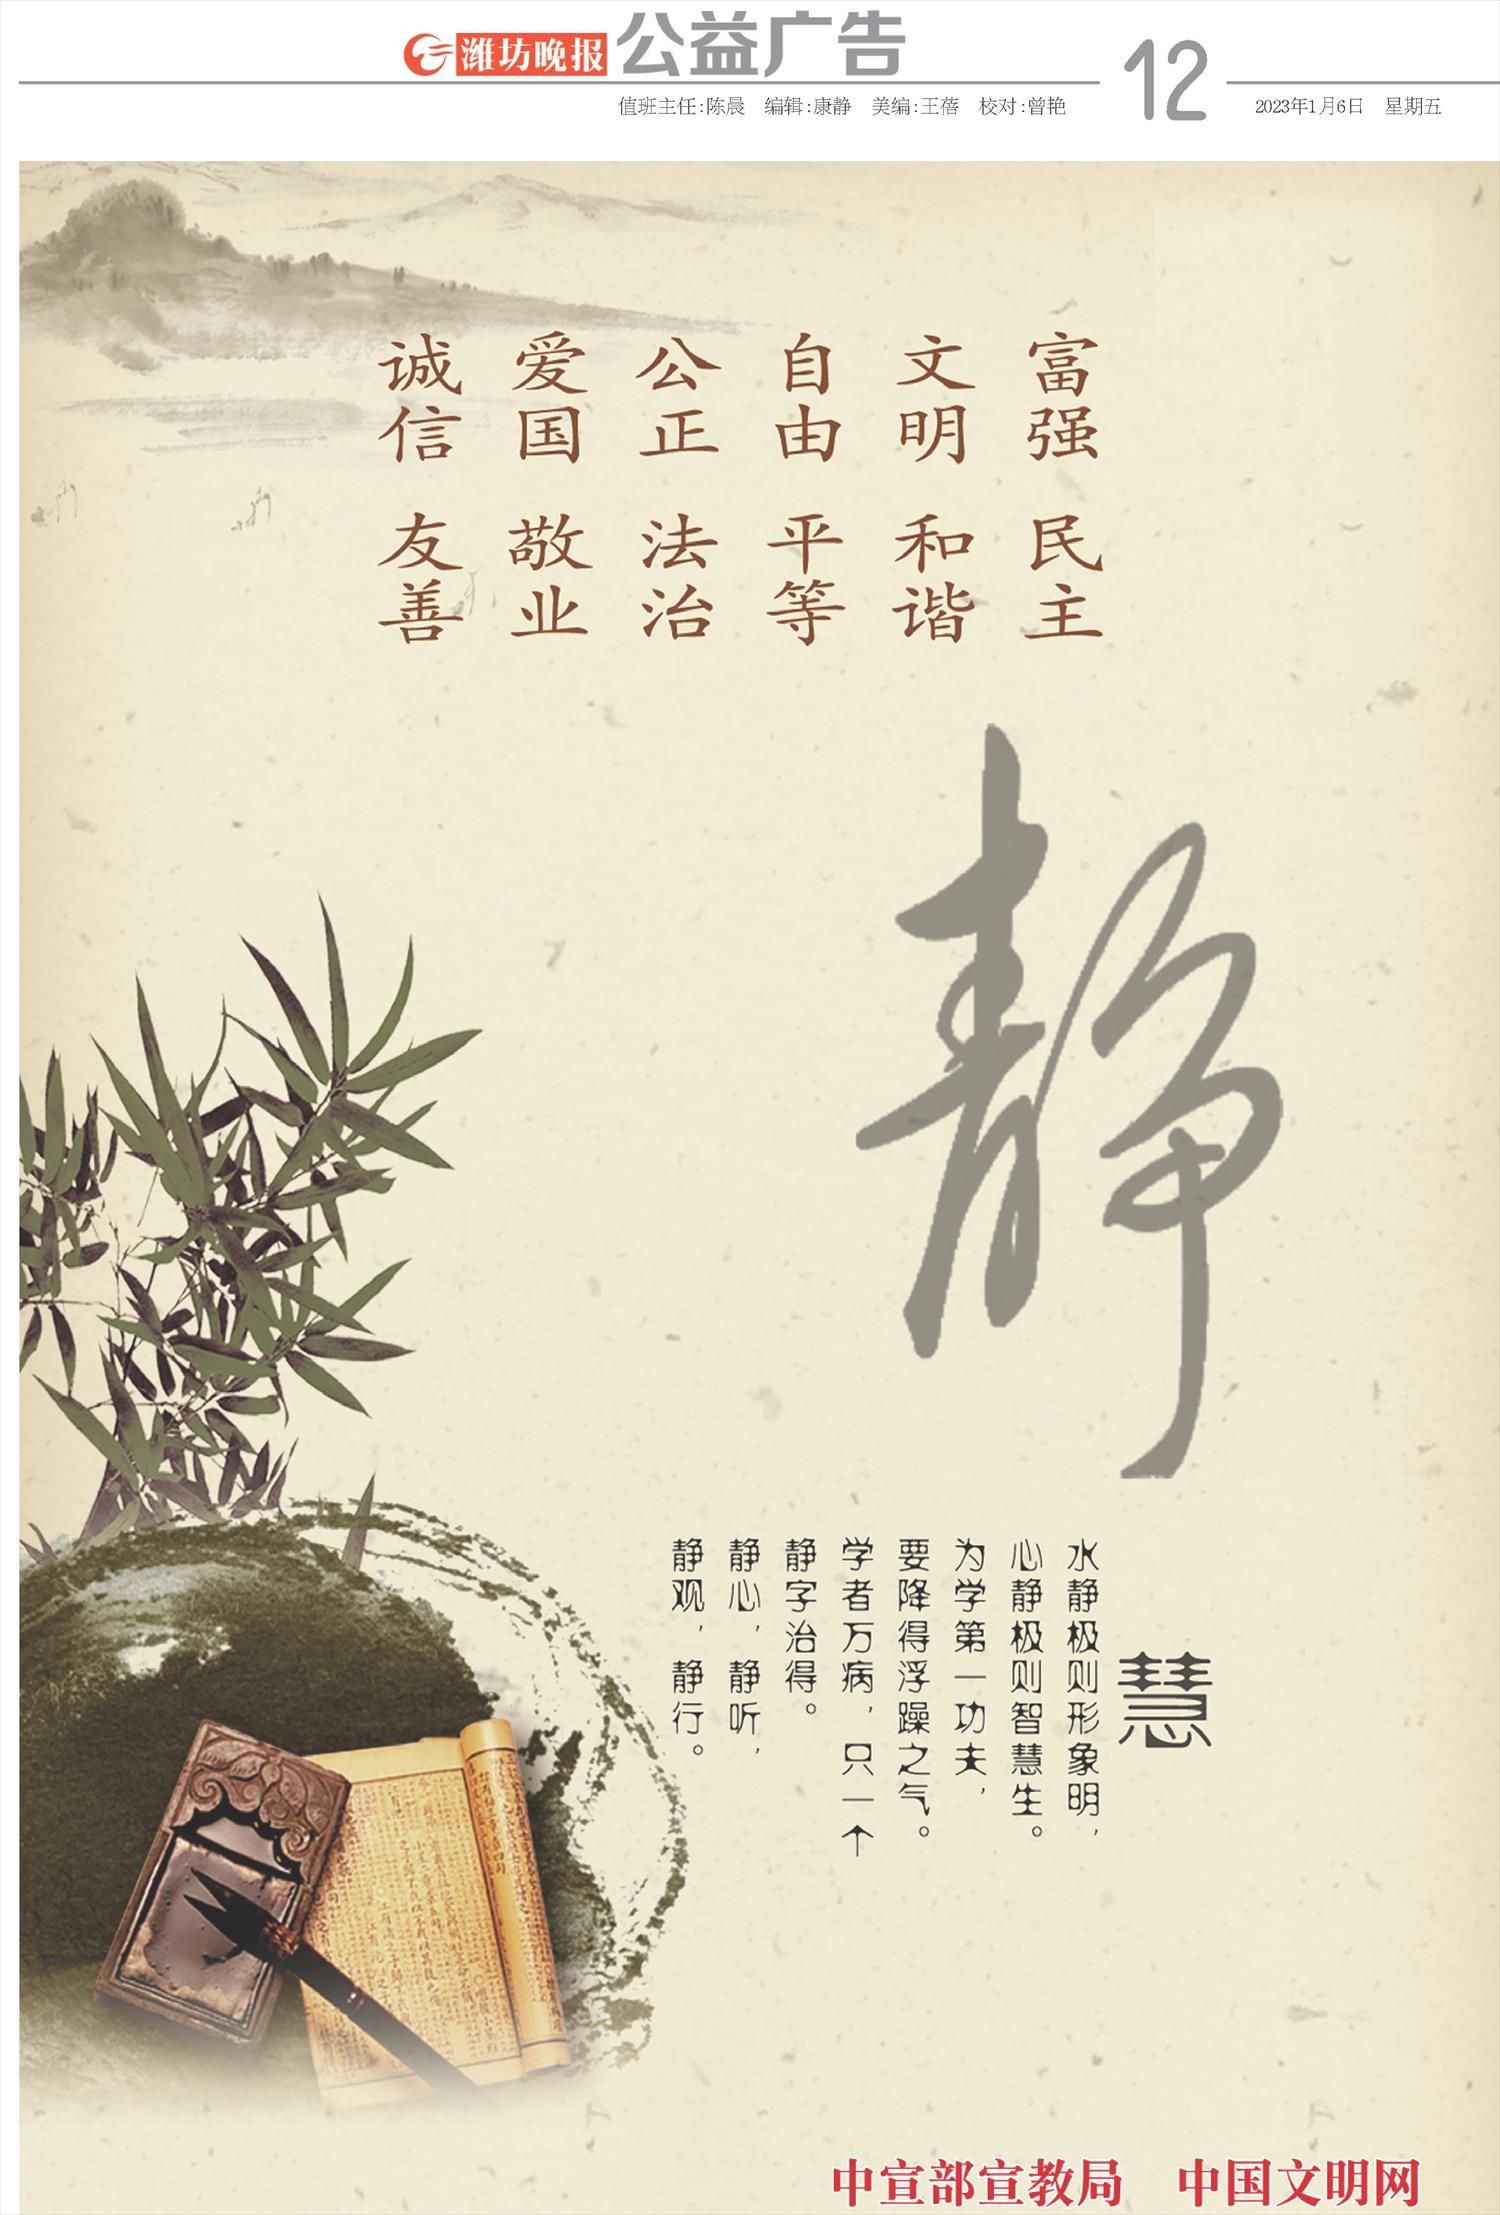 潍坊晚报 公益广告
12
值班主任:陈晨 编辑:康静 美编:王蓓 校对:曾艳
2023年1月6日 星期五
富强 民主
文明 和谐
自由 平等
公正 法治
爱国 敬业
诚信 友善
静
慧
水静极则形象明，
心静极则智慧生。
为学第一功夫，
要降得浮躁之气。
学者万病，只一个
静字治得。
静心，静听，
静观，静行。
中宣部宣教局 中国文明网